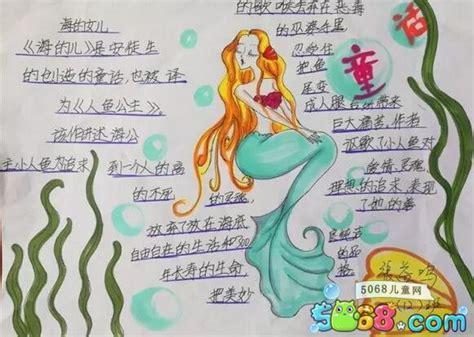 海的女儿
《海的儿》是安徒生
的创造的童话,也被译
为《人鱼公主》
该作讲述海公
主小人鱼为追求
到一个人的
的不死
的灵魂,
放弃了放在海底
自由自在的生活和300
年长寿的生命
把美妙
的歌喉
恶毒
的巫婆手里
忍受住
把鱼
尾变
成人腿
来
巨大痛苦,作者
以小人鱼对
爱情,灵魂,
理想的追求,表现
了她的善
良纯洁
的品
格
童话
(12)班
5068儿童网
5068.com